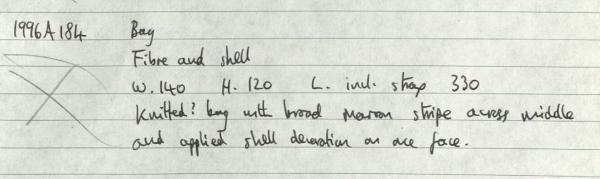 1996A184 Bag
Fibre and shell
W. 140 H. 120 L. incl. strap 330
Knitted? bag with broad maroon stripe across middle
and applied shell decoration on one face.